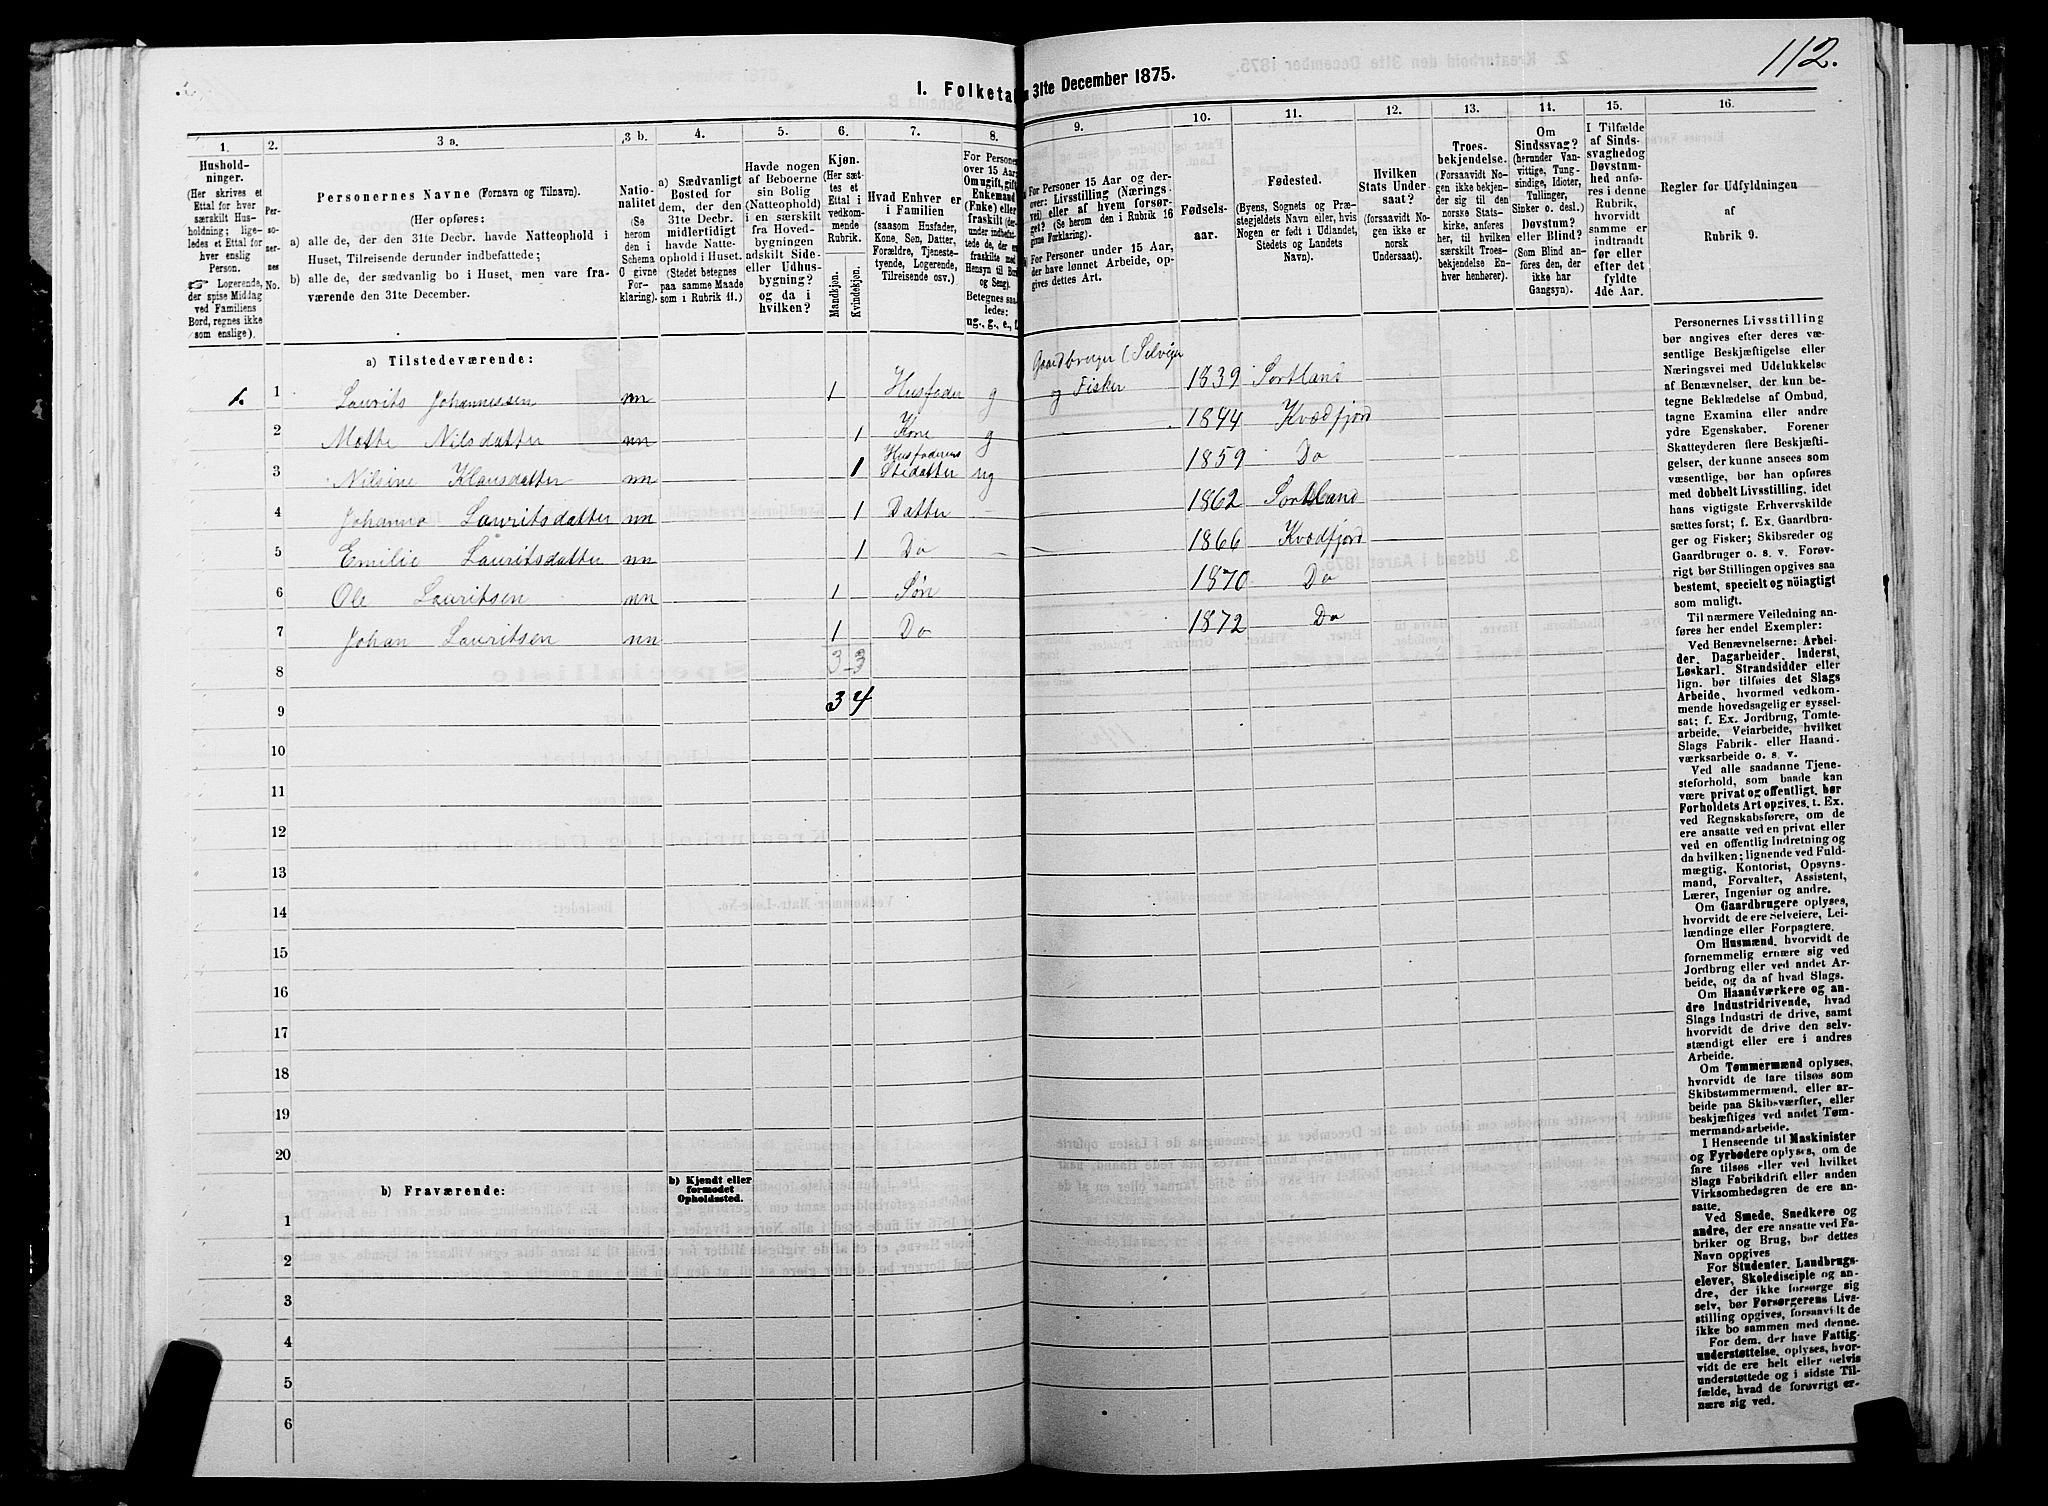 112.
I. Folketa
n 31te December 1875.
1.
2.
3 a.
3 b.
4.
5.
6.
7.
8.
9.
10.
11.
12.
13.
14.
15.
16.
Hushold-
ninger.
(Her skrives et
Ettal for hver
særskilt Hus-
holdning; lige-
ledes et Ettal for
hver enslig
Person.
☞ Logerende,
der spise Middag
ved Familiens
Bord, regnes ikke
som enslige).
Per-
so-
ner-
nes
No.
Personernes Navne (Fornavn og Tilnavn).
(Her opføres:
a) alle de, der den 31te Decbr. havde Natteophold i
Huset, Tilreisende derunder indbefattede;
b) alle de, der sædvanlig bo i Huset, men vare fra-
værende den 31te December.
Natio-
nalitet
(Se
herom
den i
Schema
C givne
For-
klaring).
a) Sædvanligt
Bosted for
dem, der den
31te Decbr.
midlertidigt
havde Natte-
ophold i Huset.
(Stedet betegnes
paa samme Maade
som i Rubrik 11.)
Havde nogen
af Beboerne
sin Bolig
(Natteophold)
i en særskilt
fra Hoved-
bygningen
adskilt Side-
eller Udhus-
bygning?
og da i
hvilken?
Kjøn.
(Her sæt-
tes et
Ettal i
vedkom-
mende
Rubrik.
Mandkjøn.
Kvindekjøn.
Hvad Enhver er
i Familien
(saasom Husfader,
Kone, Søn, Datter,
Forældre, Tjeneste-
tyende, Logerende,
Tilreisende osv.)
For Personer
over 15 Aar:
Om ugift, gift,
Enkemand
(Enke) eller
fraskilt (der-
under indbefat-
tede de, der ere
fraskilte med
Hensyn til Bord
og Seng).
Betegnes saa-
ledes:
ug., g., e., f.
For Personer 15 Aar og der-
over: Livsstilling (Nærings-
vei) eller af hvem forsør-
get? (Se herom den i Rubrik 16
givne Forklaring).
For Personer under 15 Aar,
der have lønnet Arbeide, op-
gives dettes Art.
Fødsels-
aar.
Fødested.
(Byens, Sognets og Præ-
stegjeldets Navn eller, hvis
Nogen er født i Udlandet,
Stedets og Landets
Navn).
Hvilken
Stats Under-
saat?
(forsaavidt No-
gen ikke er
norsk
Undersaat).
Troes-
bekjendelse.
(Forsaavidt No-
gen ikke bekjen-
der sig til den
norske Stats-
kirke, anføres
her, til hvilken
særskilt Troes-
bekjendelse En-
hver henhører).
Om
Sindssvag?
(herunder Van-
vittige, Tung-
sindige, Idioter,
Tullinger,
Sinker o. desl.)
Døvstum?
eller Blind?
(Som Blind an-
føres den, der
ikke har
Gangsyn).
I Tilfælde
af Sinds-
svaghed og
Døvstum-
hed anfø-
res i denne
Rubrik,
hvorvidt
samme er
indtraadt
før eller
efter det
fyldte
4de Aar.
Regler for Udfyldningen
af
Rubrik 9.
a) Tilstedeværende:
1. 1 Laurits Johannessen nn 1 Husfader g Gaardbruger (Selveier og Fisker 1839 Sortland
2 Mette Nilsdatter nn 1 Kone g 1844 Kvædfjord
3 Nilsine Klausdatter nn 1 Husfaderens Stedatter ug 1859 Do
4 Johanna Lauritsdatter nn 1 Datter 1862 Sortland
5 Emilie Lauritsdatter nn 1 Do 1866 Kvædfjord
6 Ole Lauritsen nn 1 Søn 1870 Do
7 Johan Lauritsen nn 1 Do 1872 Do
8 3 3
9 3 4
10
11
12
13
14
15
16
17
18
19
20
b) Fraværende:
b) Kjendt eller
formodet
Opholdssted.
1
2
3
4
5
6
Personernes Livsstilling
bør angives efter deres væ-
sentlige Beskjæftigelse eller
Næringsvei med Udelukkelse
af Benævnelser, der kun be-
tegne Beklædelse af Ombud,
tagne Examina eller andre
ydre Egenskaber. Forener
Skatteyderen flere Beskjæfti-
gelser, der kunne ansees som
væsentlige, bør han opføres
med dobbelt Livsstilling, idet
hans vigtigste Erhvervskilde
sættes først; f. Ex. Gaardbru-
ger og Fisker; Skibsreder og
Gaardbruger o. s. v. Forøv-
rigt bør Stillingen opgives saa
bestemt, specielt og nöiagtigt
som muligt.
Til nærmere Veiledning an-
føres her endel Exempler:
Ved Benævnelserne: Arbei-
der, Dagarbeider, Inderst,
Løskarl, Strandsidder eller
lign. bør tilføies det Slags
Arbeide, hvormed vedkom-
mende hovedsagelig er syssel-
sat; f. Ex. Jordbrug, Tomte-
arbeide, Veiarbeide, hvilket
Slags Fabrik- eller Haand-
værksarbeide o. s. v.
Ved alle saadanne Tjene-
steforhold, som baade kan
være privat og offentligt, bør
Forholdets Art opgives, t. Ex.
ved Regnskabsførere, om de
ere ansatte ved en privat eller
ved en offentlig Indretning og
da hvilken; lignende ved Fuld-
mægtig, Kontorist, Opsyns-
mand, Forvalter, Assistent,
Lærer, Ingeniør og andre.
Om Gaardbrugere oplyses,
hvorvidt de ere Selveiere, Lei-
lændinge eller Forpagtere.
Om Husmænd, hvorvidt de
fornemmelig ernære sig ved
Jordbrug eller ved andet Ar-
beide, og da af hvad Slags.
Om Haandværkere og an-
dre Industridrivende, hvad
Slags Industri de drive, samt
hvorvidt de drive den selv-
stændigt eller ere i andres
Arbeide.
Om Tømmermænd oplyses,
hvorvidt de fare tilsøs som
Skibstømmermænd, eller ar-
beide paa Skibsværfter, eller
beskjæftiges ved andet Tøm-
mermandsarbeide.
I Henseende til Maskinister
og Fyrbødere oplyses, om de
fare tilsøs eller ved hvilket
Slags Fabrikdrift eller anden
Virksomhedsgren de ere an-
satte.
Ved Smede, Snedkere og
andre, der ere ansatte ved Fa-
briker og Brug, bør dettes
Navn opgives
For Studenter, Landbrugs-
elever, Skoledisciple og an-
dre, der ikke forsørge sig
selv, bør Forsørgerens Livs-
stilling opgives, forsaavidt de
ikke bo sammen med denne.
For dem, der have Fattig-
understøttelse, oplyses, hvor-
vidt de ere helt eller delvis
understøttede og i sidste Til-
fælde, hvad de forøvrigt er-
nære sig ved.